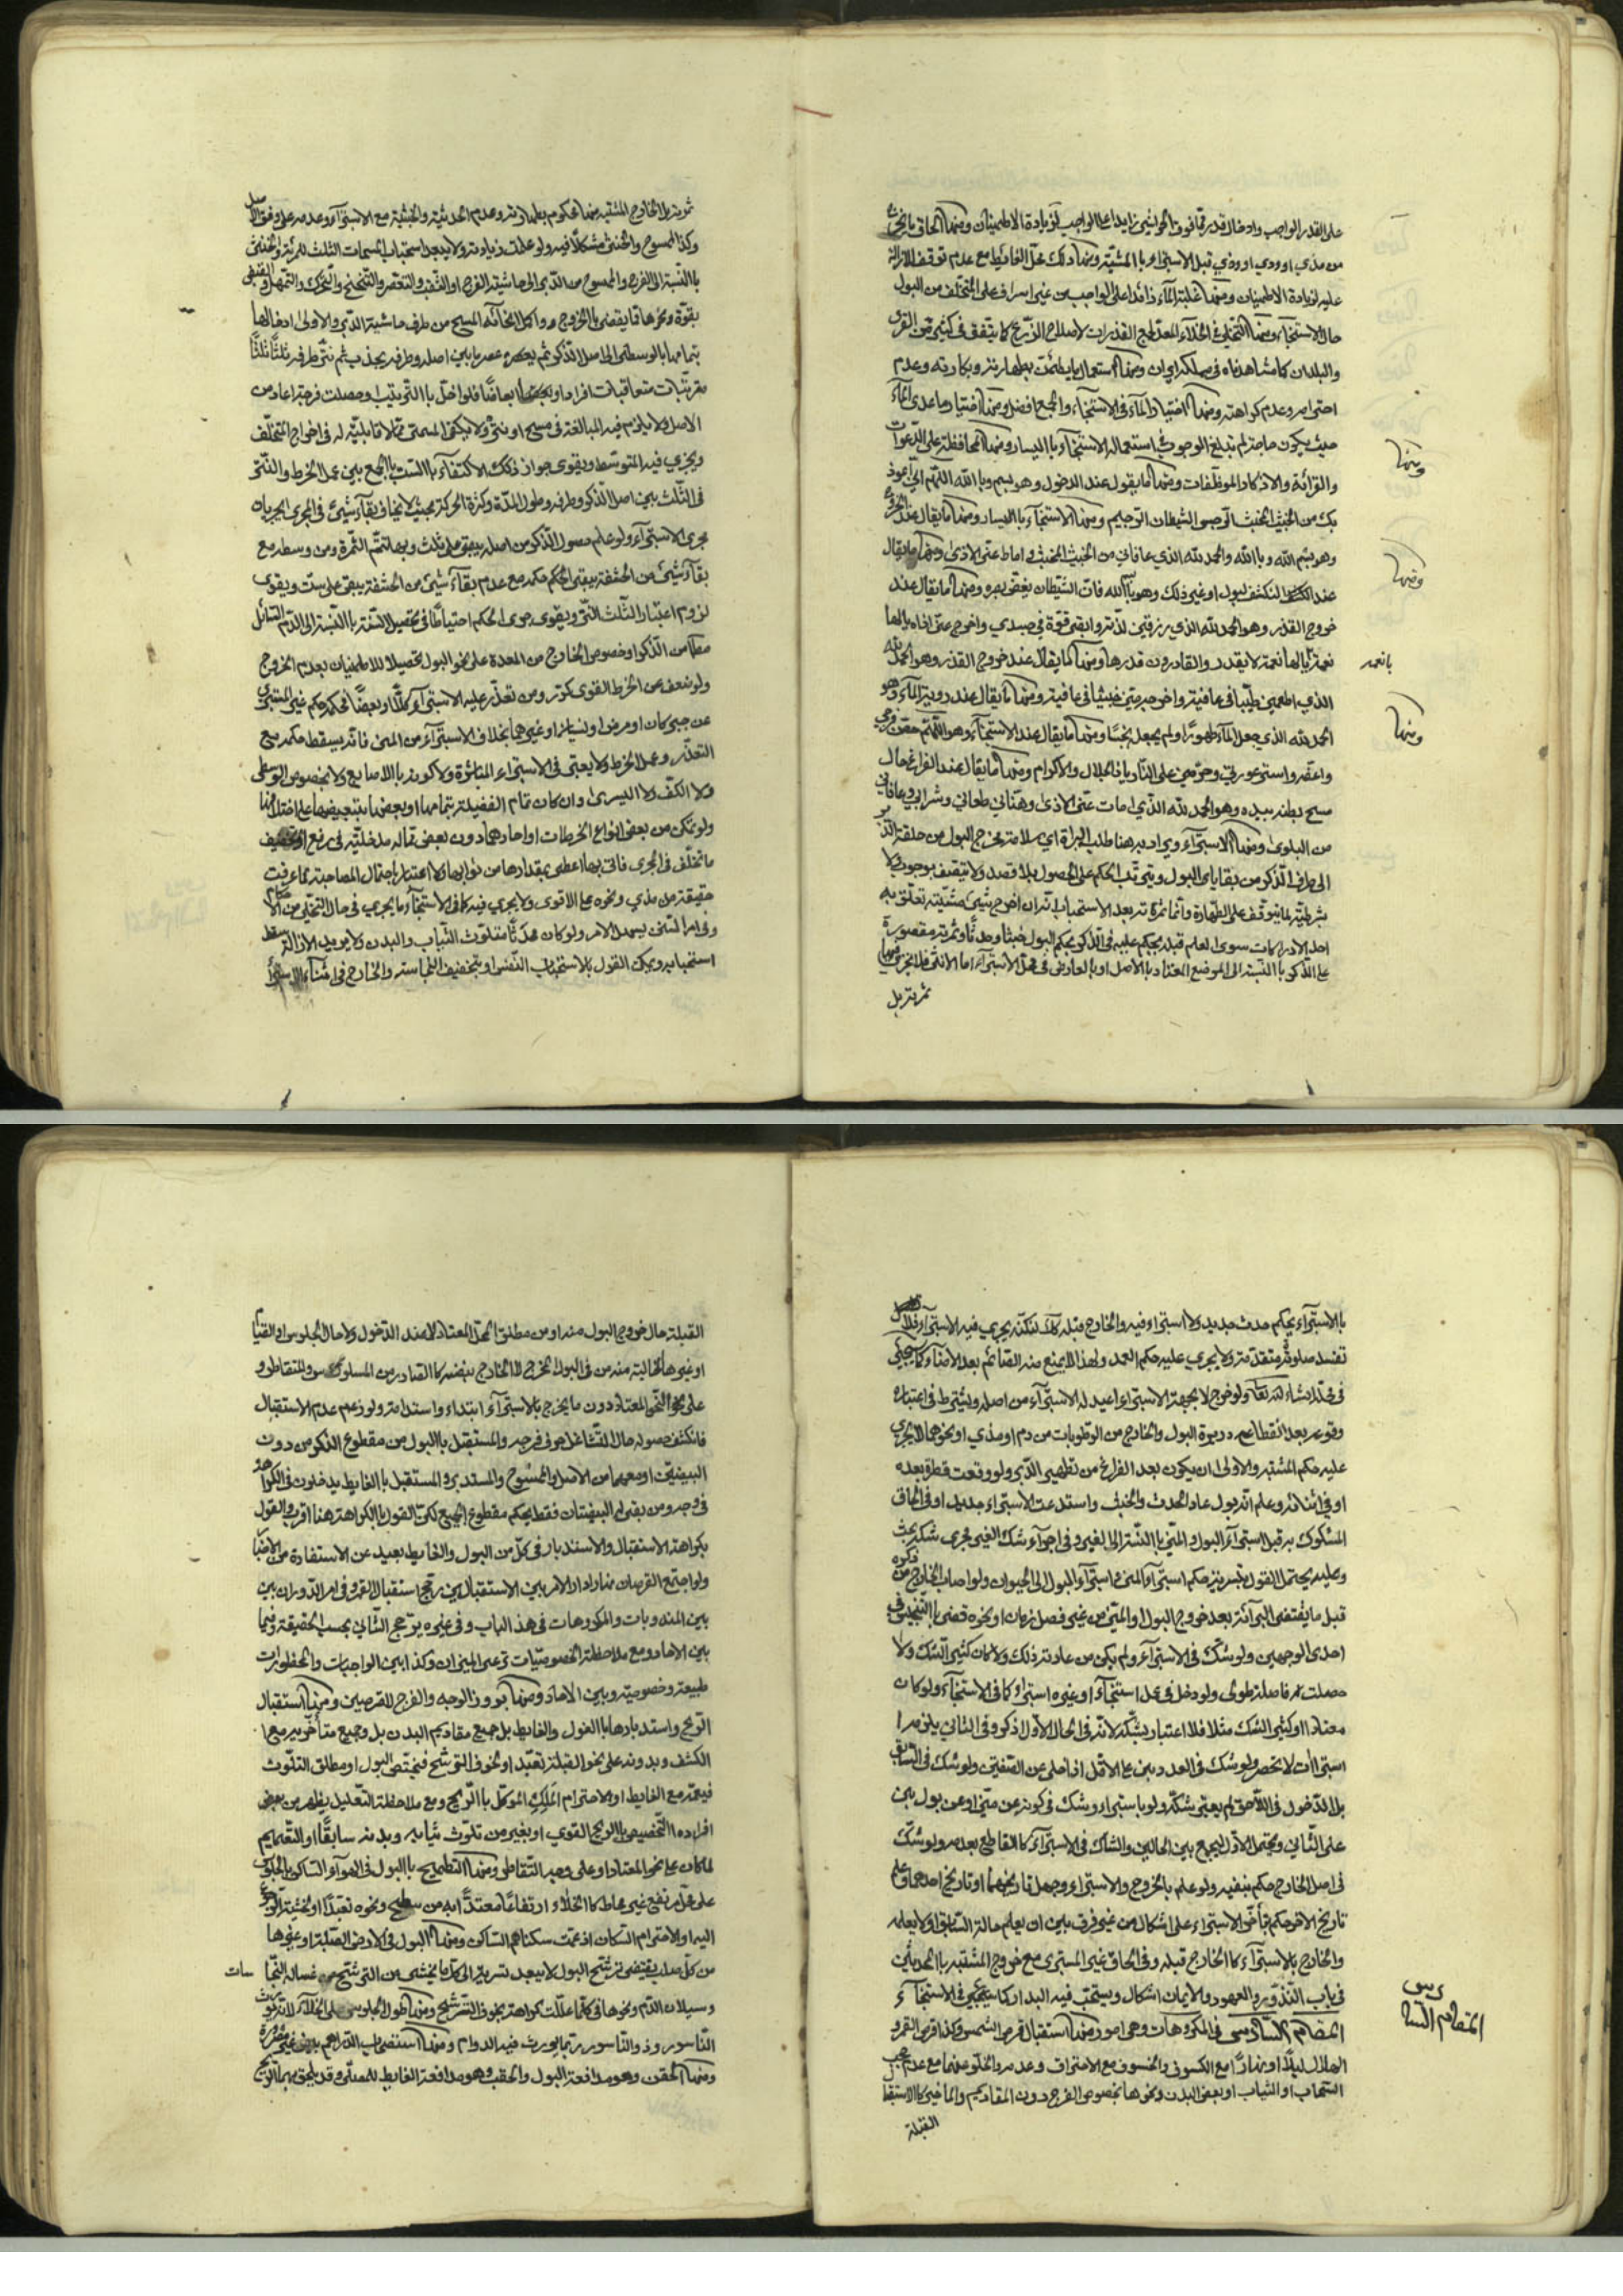 على القدر الواجب وادخال قدر مما فوق الحواشي زايدا على الواجب لزيادة الاطمينان ومنها الحاق ما يخرج
من مذي او ودي او وذي قبل الاستبراء با المشتبه ومنها دلك محل الغائط مع عدم توقف الازالة
عليه لزيادة الاطمينان ومنها غلبة المآء زائدا على الواجب من غير اسراف على المتخلف من البول
حال الاستنجاء ومنها التخلي في الخلاء المعد لجمع القذرات لاصلاح الزرع كما يتفق في كثير من القرى
والبلدان كما شاهدناه في مملكة ايران ومنها استعمال ما يطمئن بطهارته وبكارته وعدم
احترامه وعدم كراهته ومنها اختيار المآء في الاستنجآء والجمع افضل ومنها اختيار ما عدى المآء
حيث يكون حاجة لم تبلغ الوجوب في استعماله الاستنجآء با اليسار ومنها المحافظة على الدعوات
والقرائة والاذكار الموظفات ومنها ما يقول عند الدخول وهو بسم وبا الله اللهم اني اعوذ
بك من الخبيث المخبث الرجس الشيطان الرجيم ومنها الاستنجآء با اليسار ومنها ما يقال عند الخروج
وهو بسم الله وبا الله والحمد لله الذي عافاني من الخبيث المخبث واماط عني الاذى ومنها ما يقال
عند التكشف لبول او غير ذلك وهو بسم الله فان الشيطان يغض بصره ومنها ما يقال عند
خروج القذر وهو الحمد لله الذي رزقني لذته وابقى قوته في جسدي واخرج عني اذاه يا لها
نعمة يا لها نعمة لا يقدر القادرون قدرها ومنها ما يقال عند خروج القذر وهو الحمد لله
الذي اطعمني طيبا في عافية واخرجه مني خبيثا في عافية ومنها ما يقال عند روية المآء وهو
الحمد لله الذي جعل المآء طهورا ولم يجعله نجسا ومنها ما يقال عند الاستنجآء وهو اللهم حصن فرجي
واعفه واستر عورتي وحرمني على النار يا ذا الجلال والاكرام ومنها ما يقال عند الفراغ حال
مسح بطنه بيده وهو الحمد لله الذي اماط عني الاذى وهنأني طعامي وشرابي وعافاني
من البلوى ومنها الاستبرآء ويراد به هنا طلب البراة اي سلامة مخرج البول من حلقة الدبر
الى طرف الذكر من بقايا البول ويترتب الحكم على الحصول بلا قصد ولا يتصف بوجوب ولا
بشرطية لما يتوقف على الطهارة وانما ثمرته بعد الاستحباب انه ان اخرج شيئ مشتبه تعلق به
احد الادراكات سوى العلم قبله يحكم عليه في الذكر بحكم البول خبثا وحدثا وثمرته مقصورة
على الذكر با النسبة الى الموضع المعتاد با الاصل او با العارض في محل الاستبرآء اما الانثى فلا يجري فيها
ثمرته بل
ومنها
ومنها
يا نعمة
ومنها
ثمرته بل الخارج المشتبه منها محكوم بطهارته وعدم الحدثية والخبثية مع الاستبرآء وعدمه على وفق الاصل
وكذا الممسوح والخنثى مشكلا فيه ولو علمت زيادته ولا يبعد استحباب المسحات الثلث للمرئة والخنثى
با النسبة الى الفرج والممسوح من الدبر الى حاشية الفرج او الثقب والتعصر والتنحنح والتحرك والتمهل
بقوة ونحوها مما يقضي با الخروج واكمل انحآئه المسح من طرف حاشية الدبر والاولى ادخالها
بتمامها بالوسطى الى اصل الذكر ثم عصر ما بين اصله وطرفه بجذب ثم نتر طرفه ثلثا ثلثا
مرتبات متعاقبات فلو اخل با الترتيب او حصلت فرجة اعاد من
الاصل ولا يلزم فيه المبالغة في مسح او نتر ولا يكفي المسمى مما لا قابلية له في اخراج المتخلف
ويجزي فيه المتوسط ويقوى جواز ذلك الاكتفآء با الست با الجمع بين عمل الخرط والنتر
في الثلث بين اصل الذكر وطرفه وطول المدة وكثرة الحركة بحيث لا يخاف بقآء شيئ في المجرى يجريان
مجرى الاستبرآء ولو علم حصول الذكر من اصله يبقى على ثلث وبها تتم الثمرة ومن وسطه مع
بقآء شيئ من الحشفة يبقى الحكم بحكمه مع عدم بقآء شيئ من الحشفة يبقى على ست ويقوى
لزوم اعتبار الثلث النتر ويقوى جرى الحكم احتياطا في تحصيل السنة با النسبة الى الدم السائل
مطلقا من الذكر او خصوص الخارج من المعدة على نحو البول تحصيلا للاطمينان بعدم الخروج
ولو ضعف عن الخرط القوى كرر ومن تعذر عليه الاستبرآء كلا او بعضا فحكمه حكم غير المستبرئ
عن جبر كان او مرض او نسيان او غيرهما بخلاف الاستبرآء من المنى فانه يسقط حكمه مع
التعذر وعمل الخرط ولا يعتبر في الاستبراء المباشرة ولا كونه با الاصابع ولا بخصوص الوسطى
ولا الكف ولا اليسرى وان كان تمام الفضيلة بتمامها او بعضها بتبعيضها على اختلافها
ولو تمكن من بعض انواع الخرطات او احادها دون بعض مما له مدخلية في رفع او تخفيف
ما تخلف في المجرى فاتى بها اعطى بمقدارها من ثوابها ولا اعتبار باحتمال المصاحبة مما عرفت
حقيقته من مذي ونحوه على الاقوى ولا يجري فيه كما في الاستنجآء ما يجري في حال التخلى من الاحكام
وفي امر التخلى يسهل الامر ولو كان محدثا متلوث الثياب والبدن ولا مريد لازالته سقط
استحبابه ويمكن القول بالاستحباب النفسى او بتخفيف النجاسة والخارج في اثنآء الاستبرآء
با الاستبرآء يحكم حدث جديد ولا استبراء فيه والخارج قبله كذلك لكنه يجري فيه الاستبرآء فلا
تفسد صلوته متقدمة ولا يجري عليه حكم العمد ولهذا لا يمنع منه الصائم بعد الامناء كما سيجيئ
في محله انشاء الله تعا ولو خرج لا بجهة الاستبراء اعيد له الاستبرآء من اصله ويشترط في اعتباره
وقوعه بعد انقطاع دريرة البول والخارج من الرطوبات من دم او مذي او نحوهما لا يجري
عليه حكم المشتبه والاولى ان يكون بعد الفراغ من تطهير الدبر ولو وقعت قطرة بعده
او في اثنائه وعلم انه بول عاد الحدث والخبث واستدعت الاستبراء جديدا وفي الحاق
المشكوك به قبل استبرآء البول والمني با النسبة الى الغير وفي اجرآء شك الغير مجرى شكه بحث
وعليه يحتمل القول بتسرية حكم استبرآء المنى واستبرآء البول الى الحيوان ولو اصاب الخارج من ذكره
قبل ما يقتضى البرآئة بعد خروج البول او المني من غير فصل زمان او نحوه قضى با التنجيس في
احدى الوجهين ولو شك في الاستبرآء ولم يكن من عادته ذلك ولا كان كثير الشك ولا
حصلت فاصلة طولى ولو دخل في عمل استنجآء او غيره استبراء كما في الاستنجآء ولو كان
معتادا او كثير الشك مثلا فلا اعتبار بشكه لانه في الحال الاول اذكر وفي الثاني يلزم
استبراات لا تحصر ولو شك في العدد بنى على الاقل اذا خلى عن الصفتين ولو شك في السابق
بلا الدخول في اللاحق لم يعتبر شكه ولو باستبراء وشك في كونه عن منى او عن بول بنى
على الثاني ويحتمل الاول ليجمع بين الحالين والشاك في الاستبرآء كالقاطع بعدمه ولو شك
في اصل الخارج حكم بنفيه ولو علم بالخروج والاستبراء وجهل تاريخهما او تاريخ احدهما وعلم
تاريخ الاخر حكم بتأخر الاستبراء على اشكال من غير فرق بين ان يعلم حالة السابق او لا يعلم
والخارج بالاستبرآء كالخارج قبله وفي الحاق غير المستبرى مع خروج المشتبه با المحدثين
في باب النذور والعهود والايمان اشكال ويستحب فيه البدار كما سيجيئ في الاستنجآء
المقام السادس في المكروهات وهي امور منها استقبال قرص الشمس وكذا قرص القمر و
الهلال ليلا او نهارا مع الكسوف والخسوف مع الاحتراق وعدمه والخلو عنهما مع عدم حجب
السحاب او الثياب او بعض البدن ونحوها بخصوص الفرج دون المقاديم والماخير كالاستقبا
القبلة
المقام السادس
القبلة حال خروج البول منه او من مطلق المحل المعتاد لا عند الدخول ولا حال الجلوس او القيام
او غيرهما الخالية منه من في البول المخرج لا الخارج بنفسه كا الصادر من المسلوس والمتقاطر و
على نحو النحو المعتاد دون ما يخرج بالاستبرآء ابتداء واستدامة ولو زعم عدم الاستقبال
فانكشف حصوله حال التشاغل حرف فرجه والمستقبل با البول من مقطوع الذكر من دون
البيضتين او معهما من الاصل والممسوح والمستدبر والمستقبل با الغايط يدخلون في الكراهة
في وجه ومن بقى له البيضتان فقط بحكم مقطوع الجميع لكن القول با الكراهة هنا اقرب والقول
بكراهة الاستقبال والاستدبار في كل من البول والغايط بعيد عن الاستفادة من الاخبار
ولو اجتمع القرصان نهارا ودار الامر بين الاستقبالين رجح استقبال القمر وفي امر الدوران بين
بين المندوبات والمكروهات في هذا الباب وفي غيره يرجح الثاني بحسب الحقيقة وفيما
بين الاحاد ومع ملاحظة الخصوصيات ترعى الميزان وكذا بين الواجبات والمحظورات
طبيعة وخصوصية وبين الاحاد ومنها بروز الوجه والفرج للقرصين ومنها استقبال
الريح واستدبارها با البول والغايط بل جميع مقاديم البدن بل وجميع متأخيره مع
الكشف وبدونه على نحو القبلة تعبدا او لخوف الترشح فيختص البول او مطلق التلوث
فيعم مع الغايط او لاحترام الملك الموكل با الريح ومع ملاحظة التعليل يظهر من بعض
افراده التخصيص با الريح القوي او بغير من تلوث ثيابه وبدنه سابقا او التعميم
لما كان على نحو المعتاد او على وجه التقاطر ومنها التطميح با البول في الهوآء الساكن بالجلوس
على محل مرتفع غير محاط كا الخلاء ارتفاعا معتدا به من سطح ونحوه تعبدا او لخشية الرجوع
اليه او لاحترام السكان اذ عمت سكناهم الساكن ومنها البول في الارض الصلبة او غيرها
من كل صلب يقتضى ترشح البول لا يبعد تسريته الى كل ما يخشى من الترشح من غسالة النجا سات
وسيلان الدم ونحوها في كلما عللت كراهته بخوف الترشح ومنها طول الجلوس على الخلآء لانه يورث
الناسور وذو الناسور ربما يورث فيه الدوام ومنها استصحاب الدراهم بيض غير مصرورة
ومنها الحقن وهو مدافعة البول والحقب وهو مدافعة الغايط للمصلى وقد يلحق بهما الريح